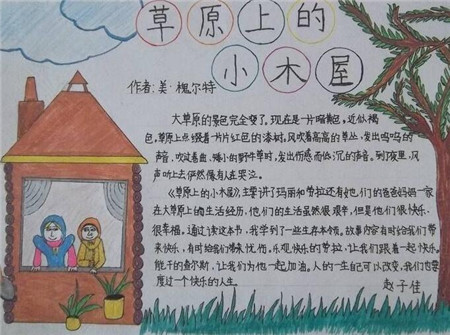 草原上的
小木屋
作者:美·槐尔特
大草原的景色完全变了,现在是一片暗黄色,近似褐
色,草原上点缀着片片红色的漆树。风吹着高高的草丛,发出呜呜的
声音,吹过卷曲、矮小的野牛草时,发出伤感而低沉的声音。到夜里,风
声听上去俨然像有人在哭泣。
《草原上的小木屋》主要讲了玛丽和劳拉还有她们的爸爸妈妈一家
在大草原上的生活经历,他们的生活虽然很艰辛,但是他们很快乐、
很幸福。通过读这本书,我学到了一些生存本领。故事内容有时给我们带
来快乐,有时给我们带来忧伤。乐观快乐的劳拉,让我们跟着一起快乐。
能干的查尔斯,让我们为他一起加油。人的一生自己可以改变,我们也要
度过一个快乐的人生。
赵子佳